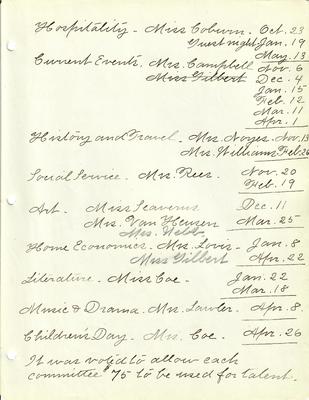 Hospitality - Miss Coburn. Oct. 23
Guest night Jan. 19
May. 13
Current Events. Mrs. Campbell Nov. 6
Miss Gilbert Dec. 4
Jan. 15
Feb. 12
Mar. 11
Apr. 1
History and Travel. Mrs. Noyes. Nov. 13
Mrs. Williams Feb. 26
Social Service. Mrs. Rees. Nov. 20
Feb. 19
Art. Miss Seavens Dec. 11
Mrs. Van Heusen Mar. 25
Mrs. Webb
Home Economics. Mrs. Lovis - Jan. 8
Miss Gilbert Apr. 22
Literature. Miss Coe. Jan. 22
Mar. 18
Music & Drama. Mrs. Lawler. Apr. 8.
Children's Day. Mrs. Coe. Apr. 26
It was voted to allow each
committee $75 to be used for talent.